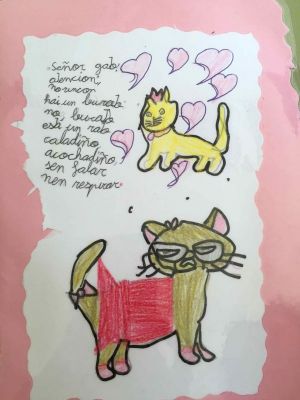 Señor gato,
atencion,
no rincon
hai un burato
no burato
está un rato
caladiño,
acochadiño,
sen falar
nen respirar.